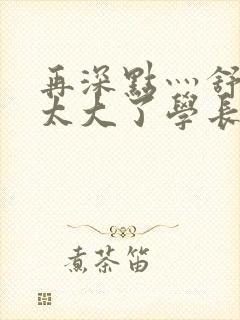 再深點灬舒
太大了學長
煮茶笛